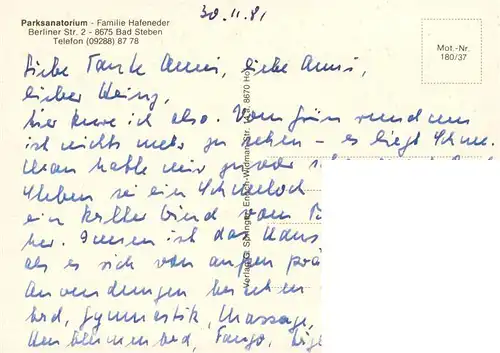 Parksanatorium - Familie Hafeneder
Berliner Str. 2 - 8675 Bad Steben
Telefon (09288) 87 78
30.11.81
Mot.-Nr.
180/37
Liebe Tante Anni, liebe Anni,
lieber Heinz,
hier kure ich also. Vom Grün rundum
ist nichts mehr zu sehen - es liegt Schnee.
Man hatte mir zuvor
Steben sei ein Schneeloch
ein kalter Wind vom
her. Innen ist das Haus
als es sich von außen
Anwendungen
bad, Gymnastik, Massage,
Fango,
Verlag G. Springer, Erich-Widmann-Str. 14a, 8670 Hof